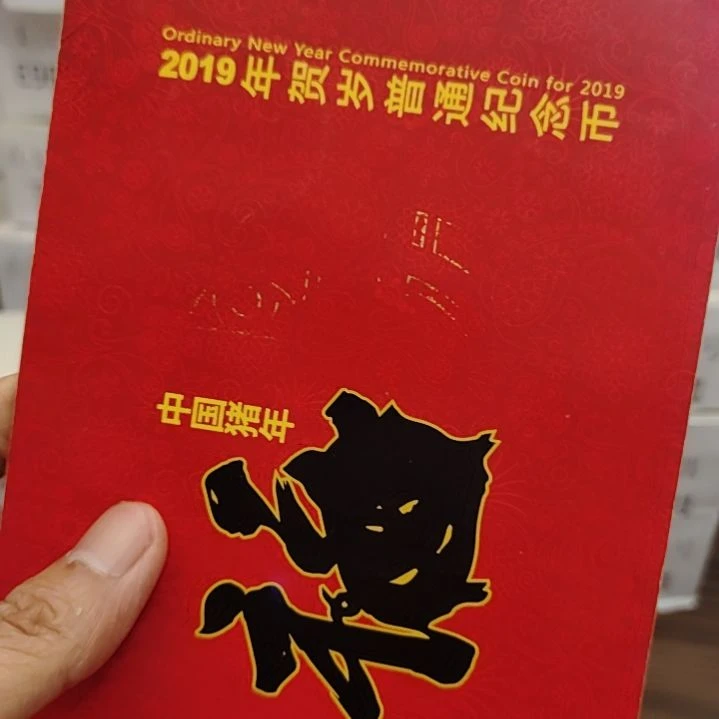 Ordinary New Year Commemorative Coin for 2019
2019年贺岁普通纪念币
中国猪年